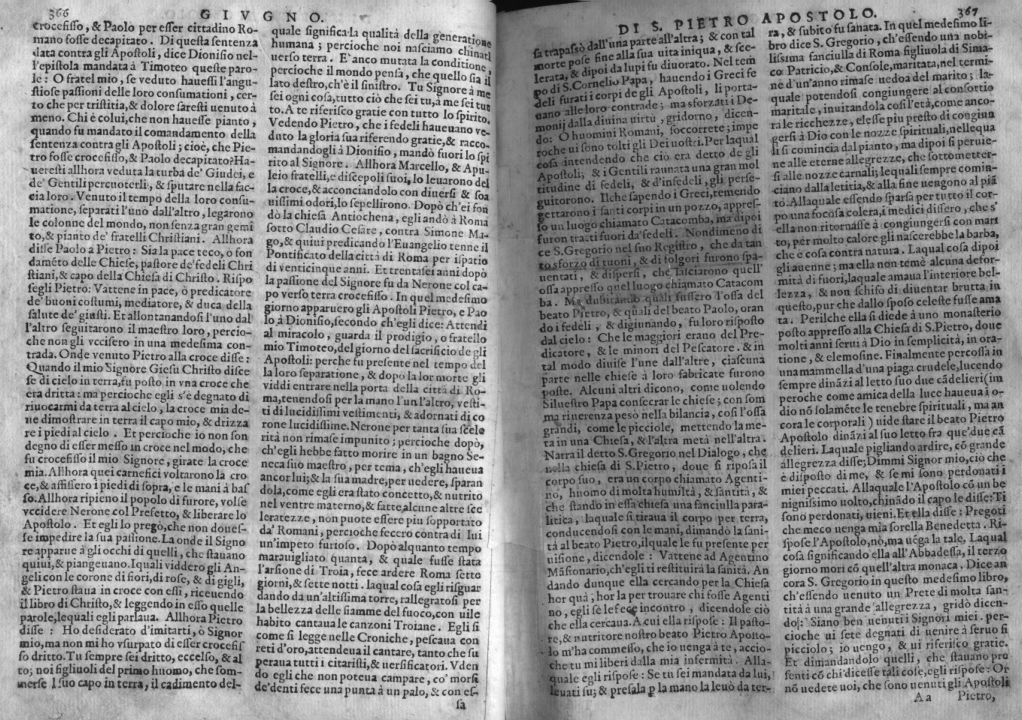 366
GIVGNO.
crocefisso, & Paolo per esser cittadino Ro-
mano fosse decapitato. Di questa sentenza
data contra gli Apostoli, dice Dionisio nel-
l'epistola mandata à Timoteo queste paro-
le: O fratel mio, se veduto hauessi l'angu-
stiose passioni delle loro consumationi, cer-
to che per tristitia, & dolore saresti uenuto à
meno. Chi è colui, che non hauesse pianto,
quando fu mandato il comandamento della
sentenza contra gli Apostoli; cioè, che Pie-
tro fosse crocefisso, & Paolo decapitato? Ha-
ueresti allhora veduta la turba de' Giudei, e
de' Gentili percuoterli, & sputare nella fac-
cia loro. Venuto il tempo della loro consu-
matione, separati l'uno dall'altro, legarono
le colonne del mondo, non senza gran gemi
to, & pianto de' fratelli Christiani. Allhora
disse Paolo à Pietro: Sia la pace teco, o fon
daméto delle Chiese, pastore de' fedeli Chri
stiani, & capo della Chiesa di Christo. Rispo
segli Pietro: Vattene in pace, ò predicatore
de' buoni costumi, mediatore, & duca della
salute de' giusti. Et allontanandosi l'uno dal
l'altro seguitarono il maestro loro, percio-
che non gli vccisero in una medesima con-
trada. Onde venuto Pietro alla croce disse:
Quando il mio Signore Giesu Christo disce
se di cielo in terra, fu posto in vna croce che
era dritta: ma percioche egli s'è degnato di
riuocarmi da terra al cielo, la croce mia de-
ue dimostrare in terra il capo mio, & drizza
re i piedi al cielo. Et percioche io non son
degno di esser messo in croce nel modo, che
fu crocefisso il mio Signore, girate la croce
mia. Allhora quei carnefici voltarono la cro-
ce, & affissero i piedi di sopra, e le mani à bas
so. Allhora ripieno il popolo di furore, volse
vccidere Nerone col Prefetto, & liberare lo
Apostolo. Et egli lo pregò, che non doues-
se impedire la sua passione. La onde il Signo
re apparue à gli occhi di quelli, che stauano
quiui, & piangeuano. Iquali viddero gli An-
geli con le corone di fiori, di rose, & di gigli,
& Pietro staua in croce con essi, riceuendo
il libro di Christo, & leggendo in esso quelle
parole, lequali egli parlaua. Allhora Pietro
disse: Ho desiderato d'imitarti, ò Signor
mio, ma non mi ho vsurpato di esser crocefis
so dritto. Tu sempre sei dritto, eccelso, & al
to; noi figliuoli del primo huomo, che som-
merse l suo capo in terra, il cadimento del-
quale significa la qualità della generatione
humana; percioche noi nasciamo chinati
uerso terra. E' anco mutata la conditione,
percioche il mondo pensa, che quello sia il
lato destro, ch'è il sinistro. Tu Signore à me
sei ogni cosa, tutto ciò che sei tu, à me sei tut
to. A te riferisco gratie con tutto lo spirito.
Vedendo Pietro, che i fedeli haueuano ve-
duto la gloria sua riferendo gratie, & racco-
mandandogli à Dionisio, mandò fuori lo spi
rito al Signore. Allhora Marcello, & Apu-
leio fratelli, e discepoli suoi, lo leuarono del
la croce, & acconciandolo con diuersi & soa
uissimi odori, lo sepellirono. Dopò ch'ei fon
dò la chiesa Antiochena, egli andò à Roma
sotto Claudio Cesare, contra Simone Ma-
go, & quiui predicando l'Euangelio tenne il
Pontificato della città di Roma per ispatio
di venticinque anni. Et trentasei anni dopò
la passione del Signore fu da Nerone col ca-
po verso terra crocefisso. In quel medesimo
giorno apparuero gli Apostoli Pietro, e Pao
lo à Dionisio, secondo ch'egli dice: Attendi
al miracolo, guarda il prodigio, o fratello
mio Timoteo, del giorno del sacrificio de gli
Apostoli: perche fu presente nel tempo del
la loro separatione, & dopò la lor morte gli
viddi entrare nella porta della città di Ro-
ma, tenendosi per la mano l'un l'altro, vesti-
ti di lucidissimi vestimenti, & adornati di co
rone lucidissime. Nerone per tanta sua scele
rità non rimase impunito; percioche dopò,
ch'egli hebbe fatto morire in un bagno Se-
neca suo maestro, per tema, ch'egli haueua
ancor lui; & la sua madre, per uedere, sparan
dola, come egli era stato concetto, & nutrito
nel ventre materno, & fatte alcune altre sce
leratezze, non puote essere piu sopportato
da' Romani, percioche fecero contra di lui
un'impeto furioso. Dopò alquanto tempo
marauigliato quanta, & quale fusse stata
l'arsione di Troia, fece ardere Roma setto
giorni, & sette notti. laqual cosa egli risguar
dando da un'altissima torre, rallegratosi per
la bellezza delle fiamme del fuoco, con uile
habito cantaua le canzoni Troiane. Egli si
come si legge nelle Croniche, pescaua con
reti d'oro, attendeua al cantare, tanto che su
peraua tutti i citaristi, & uersificatori. Vden
do egli che non poteua campare, co' morsi
de' denti fece una punta à un palo, & con es-
sa
DI S. PIETRO APOSTOLO.
367
sa trapassò dall'una parte all'altra; & con tal
morte pose fine alla sua uita iniqua, & sce-
lerata, & dipoi da lupi fu diuorato. Nel tem
po di S. Cornelio Papa, hauendo i Greci fe
deli furati i corpi de gli Apostoli, li portа-
uano alle loro contrade; ma sforzati i De-
monij dalla diuina uirtù, gridorno, dicen-
do: O huomini Romani, soccorrete; impe
roche ui sono tolti gli Dei uostri. Per laqual
cosa intendendo che ciò era detto de gli
Apostoli; & i Gentili raunata una gran mol
titudine di fedeli, & d'infedeli, gli perse-
guitorono. Ilche sapendo i Greci, temendo
gettarono i santi corpi in un pozzo, appres-
so un luogo chiamato Catacomba, ma dipoi
furon tratti fuori da' fedeli. Nondimeno di
ce S. Gregorio nel suo Registro, che da tan
to sforzo di tuoni, & di folgori furono spa-
uentati, & dispersi, che lasciarono quell'
ossa appresso quel luogo chiamato Catacom
ba. Ma dubitando quali fussero l'ossa del
beato Pietro, & quali del beato Paolo, oran
do i fedeli, & digiunando, fu loro risposto
dal cielo: Che le maggiori erano del Pre-
dicatore, & le minori del Pescatore. & in
tal modo diuise l'une dall'altre, ciascuna
parte nelle chiese à loro fabricate furono
poste. Alcuni altri dicono, come uolendo
Siluestro Papa consecrar le chiese; con som
ma riuerenza pesò nella bilancia, così l'ossa
grandi, come le picciole, mettendo la me-
ta in una Chiesa, & l'altra metà nell'altra.
Narra il detto S. Gregorio nel Dialogo, che
nella chiesa di S. Pietro, doue si riposa il
corpo suo, era un corpo chiamato Agenti-
no, huomo di molta humiltà, & santità, &
che stando in essa chiesa una fanciulla para-
litica, laquale si tiraua il corpo per terra,
conducendosi con le mani, dimandò la sani-
tà al beato Pietro, ilquale le fu presente per
uisione, dicendole: Vattene ad Agentino
Masionario, ch'egli ti restituirà la sanità. An
dando dunque ella cercando per la Chiesa
hor quà; hor la per trouare chi fosse Agenti
no, egli se le fece incontro, dicendole ciò
che ella cercaua. A cui ella rispose: Il pasto-
re, & nutritore nostro beato Pietro Aposto-
lo m'ha commesso, che io uenga à te, accio-
che tu mi liberi dalla mia infermità. Alla-
quale egli rispose: Se tu sei mandata da lui,
leuati su; & presala p la mano la leuò da ter-
ra, & subito fu sanata. In quel medesimo li-
bro dice S. Gregorio, ch'essendo una nobi-
lissima fanciulla di Roma figliuola di Sima-
co Patricio, & Console, maritata, nel termi-
ne d'un'anno rimase uedoa del marito; la-
quale potendosi congiungere al consortio
maritale, inuitandola così l'età, come anco-
ra le ricchezze, elesse piu presto di congiun
gersi à Dio con le nozze spirituali, nelle qua
li si comincia dal pianto, ma dipoi si peruie-
ne alle eterne allegrezze, che sottometter-
si alle nozze carnali; lequali sempre comin-
ciano dalla letitia, & alla fine uengono al pià
to. Allaquale essendo sparsa per tutto il cor-
po una focosa colera, i medici dissero, che s'
ella non ritornasse à congiungersi con mari
to, per molto calore gli nascerebbe la barba,
che è cosa contra natura. Laqual cosa dipoi
gli auenne; ma ella non temè alcuna defor-
mità di fuori, laquale amaua l'interiore bel-
lezza, & non schifò di diuentar brutta in
questo, pur che dallo sposo celeste fusse ama
ta. Perilche ella si diede à uno monasterio
posto appresso alla Chiesa di S. Pietro, doue
molti anni seruì à Dio in semplicità, in ora-
tione, & elemosine. Finalmente percossa in
una mammella d'una piaga crudele, lucendo
sempre dināzi al letto suo due cādelieri (im
peroche come amica della luce haueua i o-
dio nō solaméte le tenebre spirituali, ma an
cora le corporali) uide stare il beato Pietro
Apostolo dināzi al suo letto fra que' due cā
delieri. Laquale pigliando ardire, cō grande
allegrezza disse; Dimmi Signor mio, ciò che
è disposto di me, & se mi sono perdonati i
miei peccati. Allaquale l'Apostolo cō un be
nignissimo uolto, chinādo il capo le disse: Ti
sono perdonati, uieni. Et ella disse: Pregoti
che meco uenga mia sorella Benedetta. Ri-
spose l'Apostolo, nò, ma uēga la tale. Laqual
cosa significando ella all'Abbadessa, il terzo
giorno morì cō quell'altra monaca. Dice an
cora S. Gregorio in questo medesimo libro,
ch'essendo uenuto un Prete di molta san-
tità à una grande allegrezza, gridò dicen-
do: Siano ben uenuti i Signori miei. per-
cioche ui sete degnati di uenire à seruo sì
picciolo; io uengo, & ui riferisco gratie.
Et dimandandolo quelli, che stauano pre
senti cō chi dicesse tali cose, egli rispose: Or
nō uedete uoi, che sono uenuti gli Apostoli
A a
Pietro,